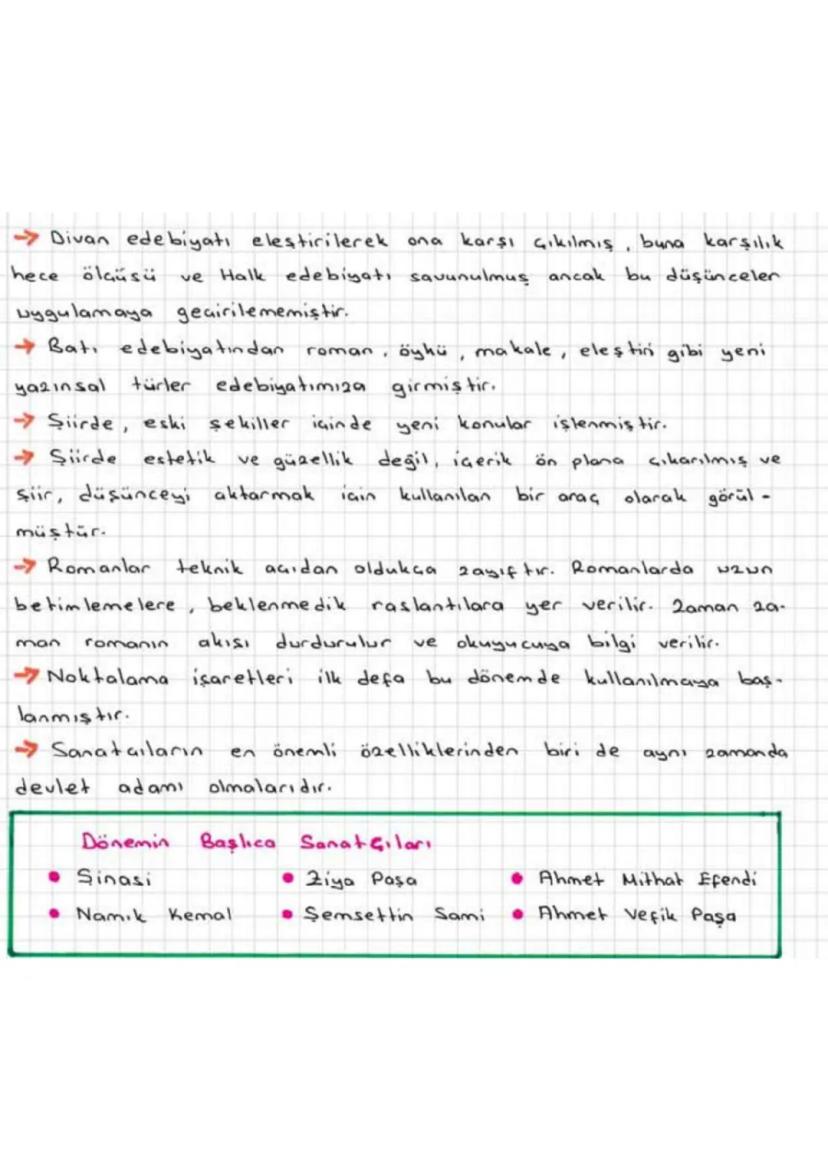 → Divan edebiyatı eleştirilerek ona karşı çıkılmış, buna karşılık
hece ölçüsü ve Halk edebiyatı savunulmuş ancak bu düşünceler
uygulamaya geçirilememiştir.
→ Batı edebiyatından roman, öykü, makale, eleştiri gibi yeni
yazınsal türler edebiyatımıza girmiştir.
→ Şiirde, eski şekiller içinde yeni konular işlenmiştir.
→ Şiirde estetik ve güzellik değil, içerik ön plana çıkarılmış ve
şiir, düşünceyi aktarmak için kullanılan bir araç olarak görül-
müştür.
→ Romanlar teknik açıdan oldukça zayıftır. Romanlarda uzun
betimlemelere, beklenmedik raslantılara yer verilir. Zaman za-
man romanın akışı durdurulur ve okuyucuya bilgi verilir.
→ Noktalama işaretleri ilk defa bu dönemde kullanılmaya baş-
lanmıştır.
→ Sanatçıların en önemli özelliklerinden biri de aynı zamanda
devlet adamı olmalarıdır.
Dönemin Başlıca Sanatçıları
• Şinasi • Ziya Paşa • Ahmet Mithat Efendi
• Namık Kemal • Şemsettin Sami • Ahmet Vefik Paşa